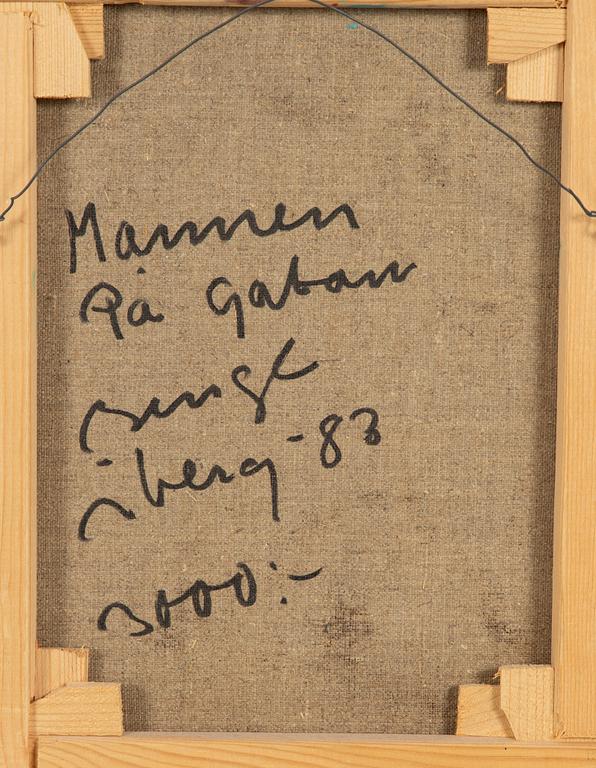 Mannen
På Gatan
Bengt
Åberg -83
3000:-